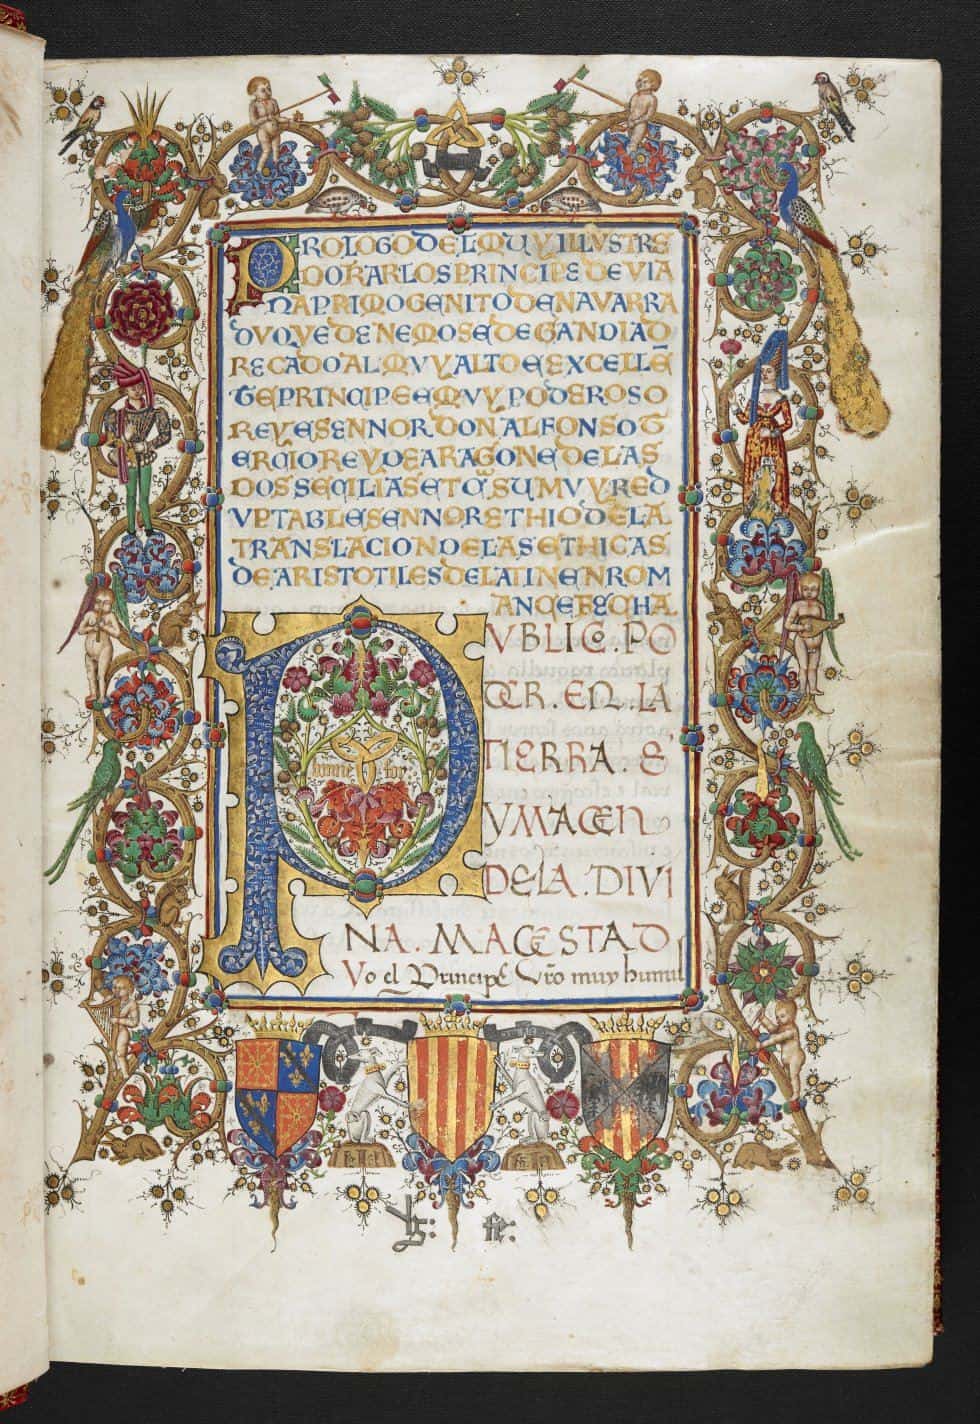 PROLOGO DEL MUY ILLVSTRE
DON KARLOS PRINCIPE DE VIA
NA PRIMOGENITO DE NAVARRA
DVQVE DE NEMOS E DE GANDIA D
REÇADO AL MVY ALTO E EXCELLĒ
TE PRINCIPE E MVY PODEROSO
REY E SENNOR DON ALFONSO T
ERCIO REY DE ARAGON E DE LAS
DOS SECILIAS ET Cͣ SU MVY RED
VPTABLE SENNOR E THIO DE LA
TRANSLACION DE LAS ETHICAS
DE ARISTOTILES DE LATIN EN ROM
ANCE FECHA
PVBLICO. PO
DER. EN. LA
TIERRA. E
YMAGEN
DE LA. DIVI
NA. MAGESTAD
Yo el Principe v̄ro muy humil